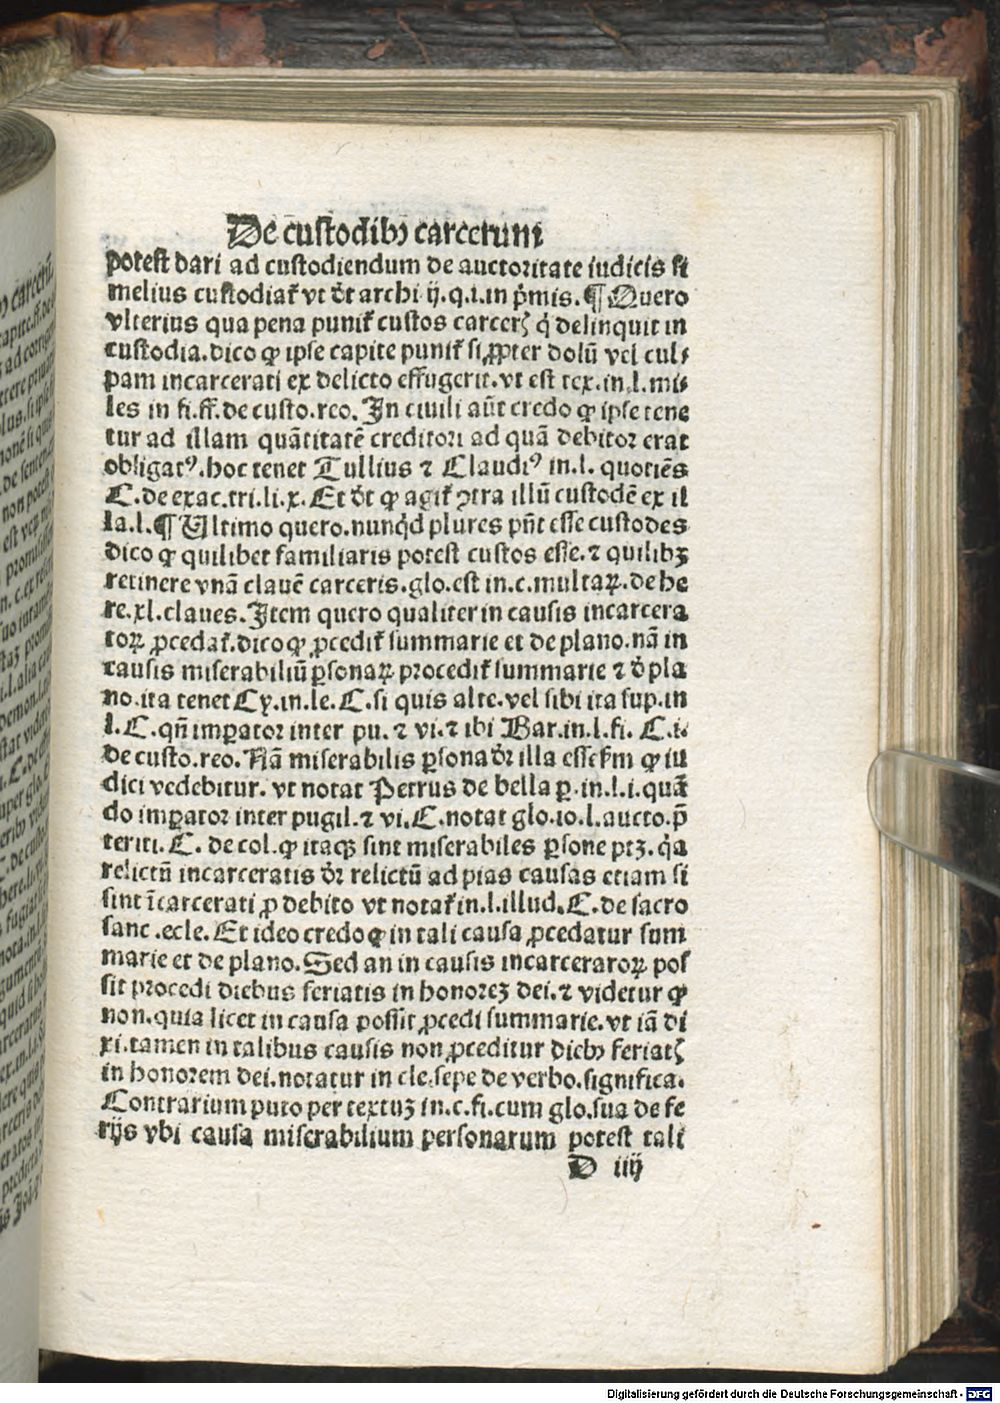 De custodibꝰ carcerum
potest dari ad custodiendum de auctoritate iudicis si
melius custodiat᷑ vt dr̄ archi ij.q.i.in p̄mis.¶ Quero
vlterius qua pena punit᷑ custos carcerꝭ q̇ delinquit in
custodia.dico ꝙ ipse capite punit᷑ si ꝓpter dolū vel cul⸗
pam incarcerati ex delicto effugerit.vt est tex.in.l.mi⸗
les in fi.ff.de custo.reo. In ciuili aūt credo ꝙ ipse tene
tur ad illam quātitatē creditori ad quā debitor erat
obligatꝰ.hoc tenet Tullius ⁊ Claudiꝰ in.l. quotiēs
C.de exac.tri.li.x. Et dr̄ ꝙ agit᷑ ꝯtra illū custodē ex il
la.l.¶ Ultimo quero.nunq̇d plures pn̄t esse custodes
dico ꝙ quilibet familiaris potest custos esse.⁊ quilibꝫ
retinere vnā clauē carceris.glo.est in.c.multaꝝ.de he
re.xl.claues. Item quero qualiter in causis incarcera
toꝝ ꝓcedat᷑.dico ꝙ ꝓcedit᷑ summarie et de plano.nā in
causis miserabiliū ꝑsonaꝝ procedit᷑ summarie ⁊ d̄ pla
no.ita tenet Cy.in.le.C.si quis alte.vel sibi ita sup.in
l.C.qn̄ imꝑator inter pu.⁊ vi.⁊ ibi Bar.in.l.fi. C.i.
de custo.reo. Nā miserabilis ꝑsona dr̄ illa esse ẜm ꝙ iu
dici vedebitur. vt notat Petrus de bella ꝑ.in.l.i.quā
do imꝑator inter pugil.⁊ vi.C.notat glo.io.l.aucto.p̄
teriti.C. de col.ꝙ itaqꝫ sint miserabiles ꝑsone ptꝫ.q̇a
relictū incarceratis dr̄ relictū ad pias causas etiam si
sint īcarcerati ꝓ debito vt notat᷑ in.l.illud.C.de sacro
sanc.ecle. Et ideo credo ꝙ in tali causa ꝓcedatur sum
marie et de plano. Sed an in causis incarceraroꝝ pos
sit procedi diebus feriatis in honorez dei.⁊ videtur ꝙ
non.quia licet in causa possit ꝓcedi summarie.vt iā di
xi.tamen in talibus causis non ꝓceditur diebꝰ feriatꝭ
in honorem dei.notatur in cle.sepe de verbo.significa.
Contrarium puto per textuꝫ in.c.fi.cum glo.sua de fe
rijs vbi causa miserabilium personarum potest tali
D iiij
Digitalisierung gefördert durch die Deutsche Forschungsgemeinschaft - DFG